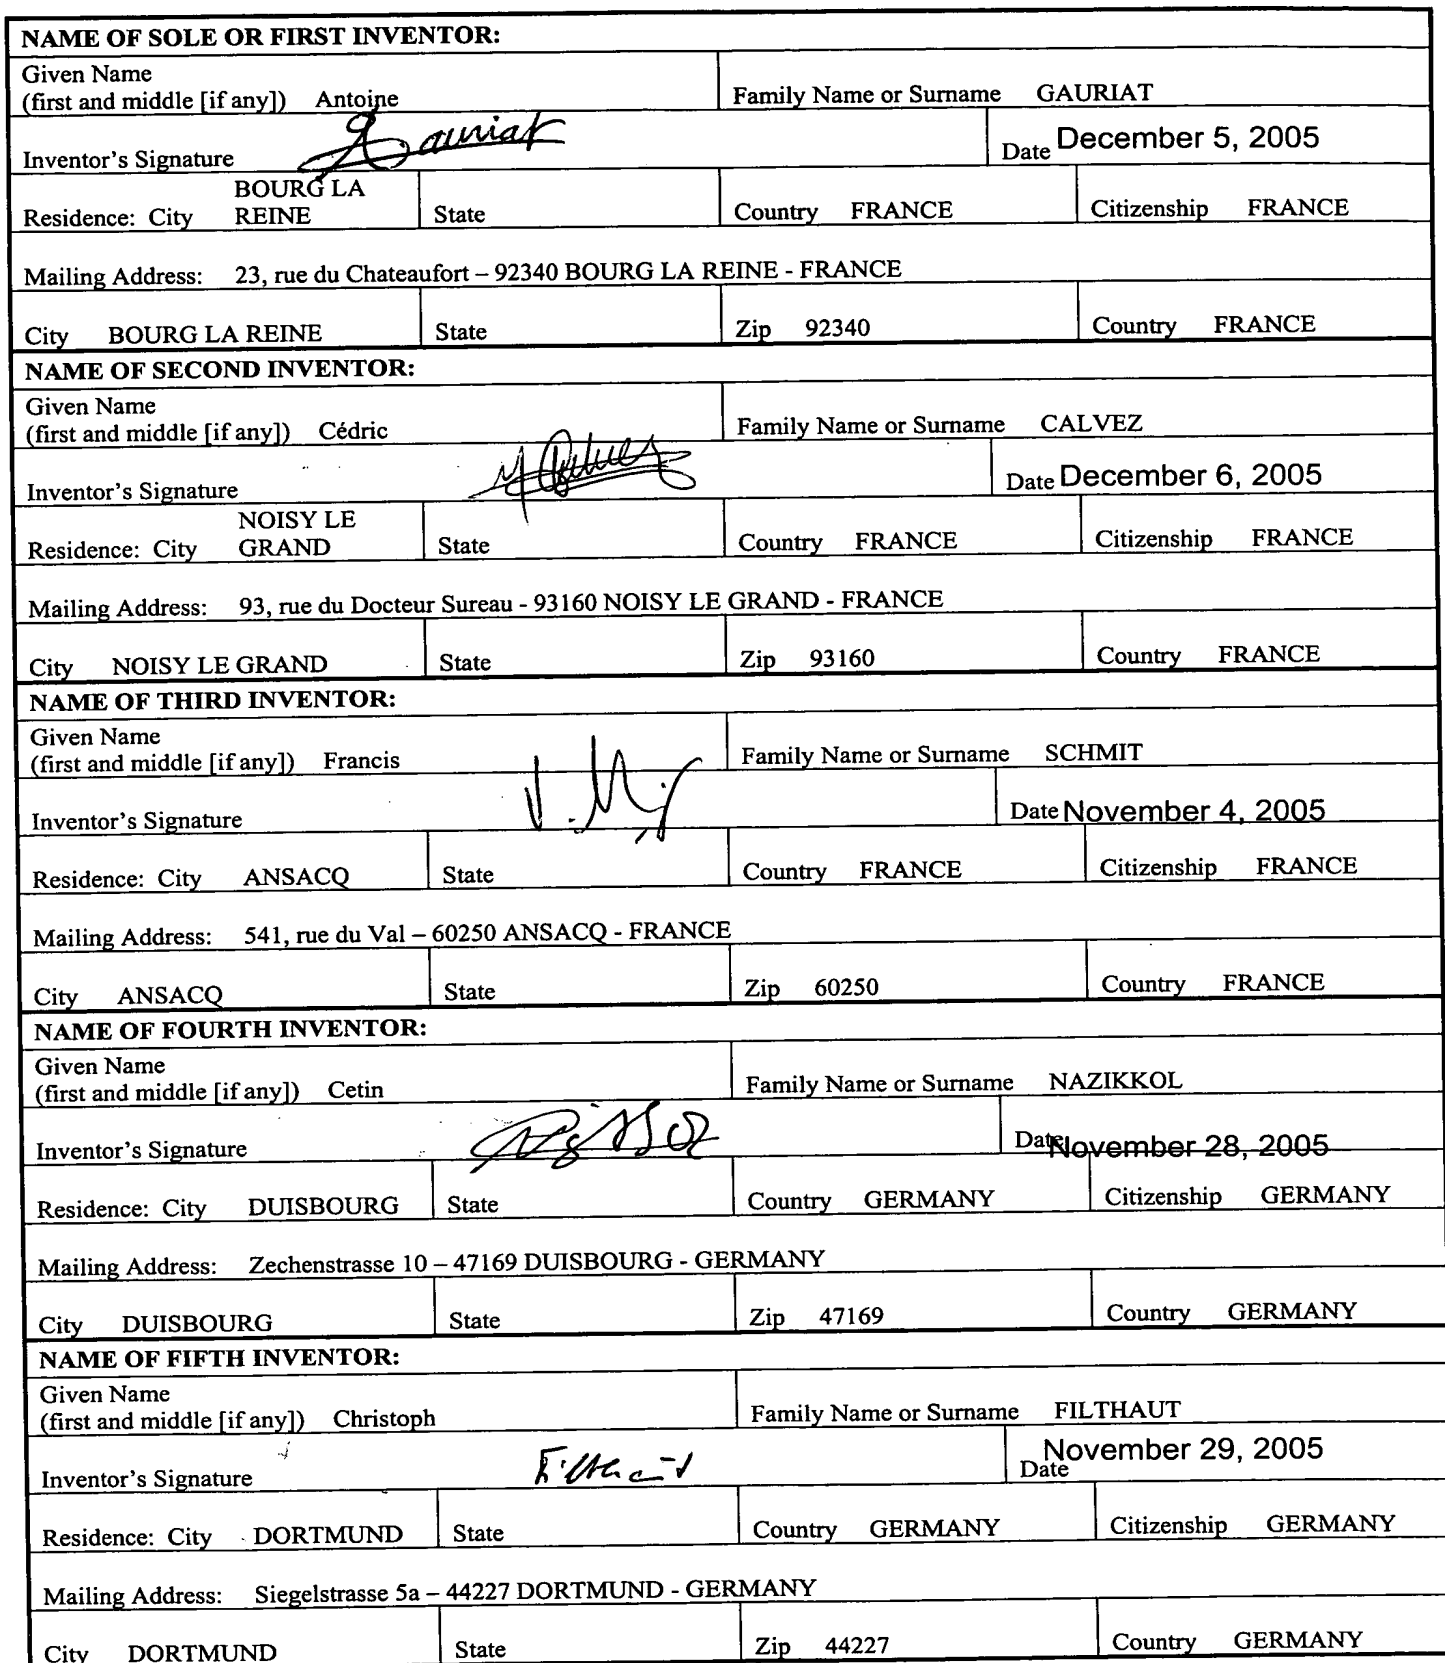 NAME OF SOLE OR FIRST INVENTOR:
Given Name
(first and middle [if any]) Antoine Family Name or Surname GAURIAT
Inventor's Signature Gauriat Date December 5, 2005
BOURG LA
Residence: City REINE State Country FRANCE Citizenship FRANCE
Mailing Address: 23, rue du Chateaufort – 92340 BOURG LA REINE - FRANCE
City BOURG LA REINE State Zip 92340 Country FRANCE
NAME OF SECOND INVENTOR:
Given Name
(first and middle [if any]) Cédric Family Name or Surname CALVEZ
Inventor's Signature Date December 6, 2005
NOISY LE
Residence: City GRAND State Country FRANCE Citizenship FRANCE
Mailing Address: 93, rue du Docteur Sureau - 93160 NOISY LE GRAND - FRANCE
City NOISY LE GRAND State Zip 93160 Country FRANCE
NAME OF THIRD INVENTOR:
Given Name
(first and middle [if any]) Francis Family Name or Surname SCHMIT
Inventor's Signature Date November 4, 2005
Residence: City ANSACQ State Country FRANCE Citizenship FRANCE
Mailing Address: 541, rue du Val – 60250 ANSACQ - FRANCE
City ANSACQ State Zip 60250 Country FRANCE
NAME OF FOURTH INVENTOR:
Given Name
(first and middle [if any]) Cetin Family Name or Surname NAZIKKOL
Inventor's Signature Date November 28, 2005
Residence: City DUISBOURG State Country GERMANY Citizenship GERMANY
Mailing Address: Zechenstrasse 10 – 47169 DUISBOURG - GERMANY
City DUISBOURG State Zip 47169 Country GERMANY
NAME OF FIFTH INVENTOR:
Given Name
(first and middle [if any]) Christoph Family Name or Surname FILTHAUT
Inventor's Signature Filthaut Date November 29, 2005
Residence: City DORTMUND State Country GERMANY Citizenship GERMANY
Mailing Address: Siegelstrasse 5a – 44227 DORTMUND - GERMANY
City DORTMUND State Zip 44227 Country GERMANY